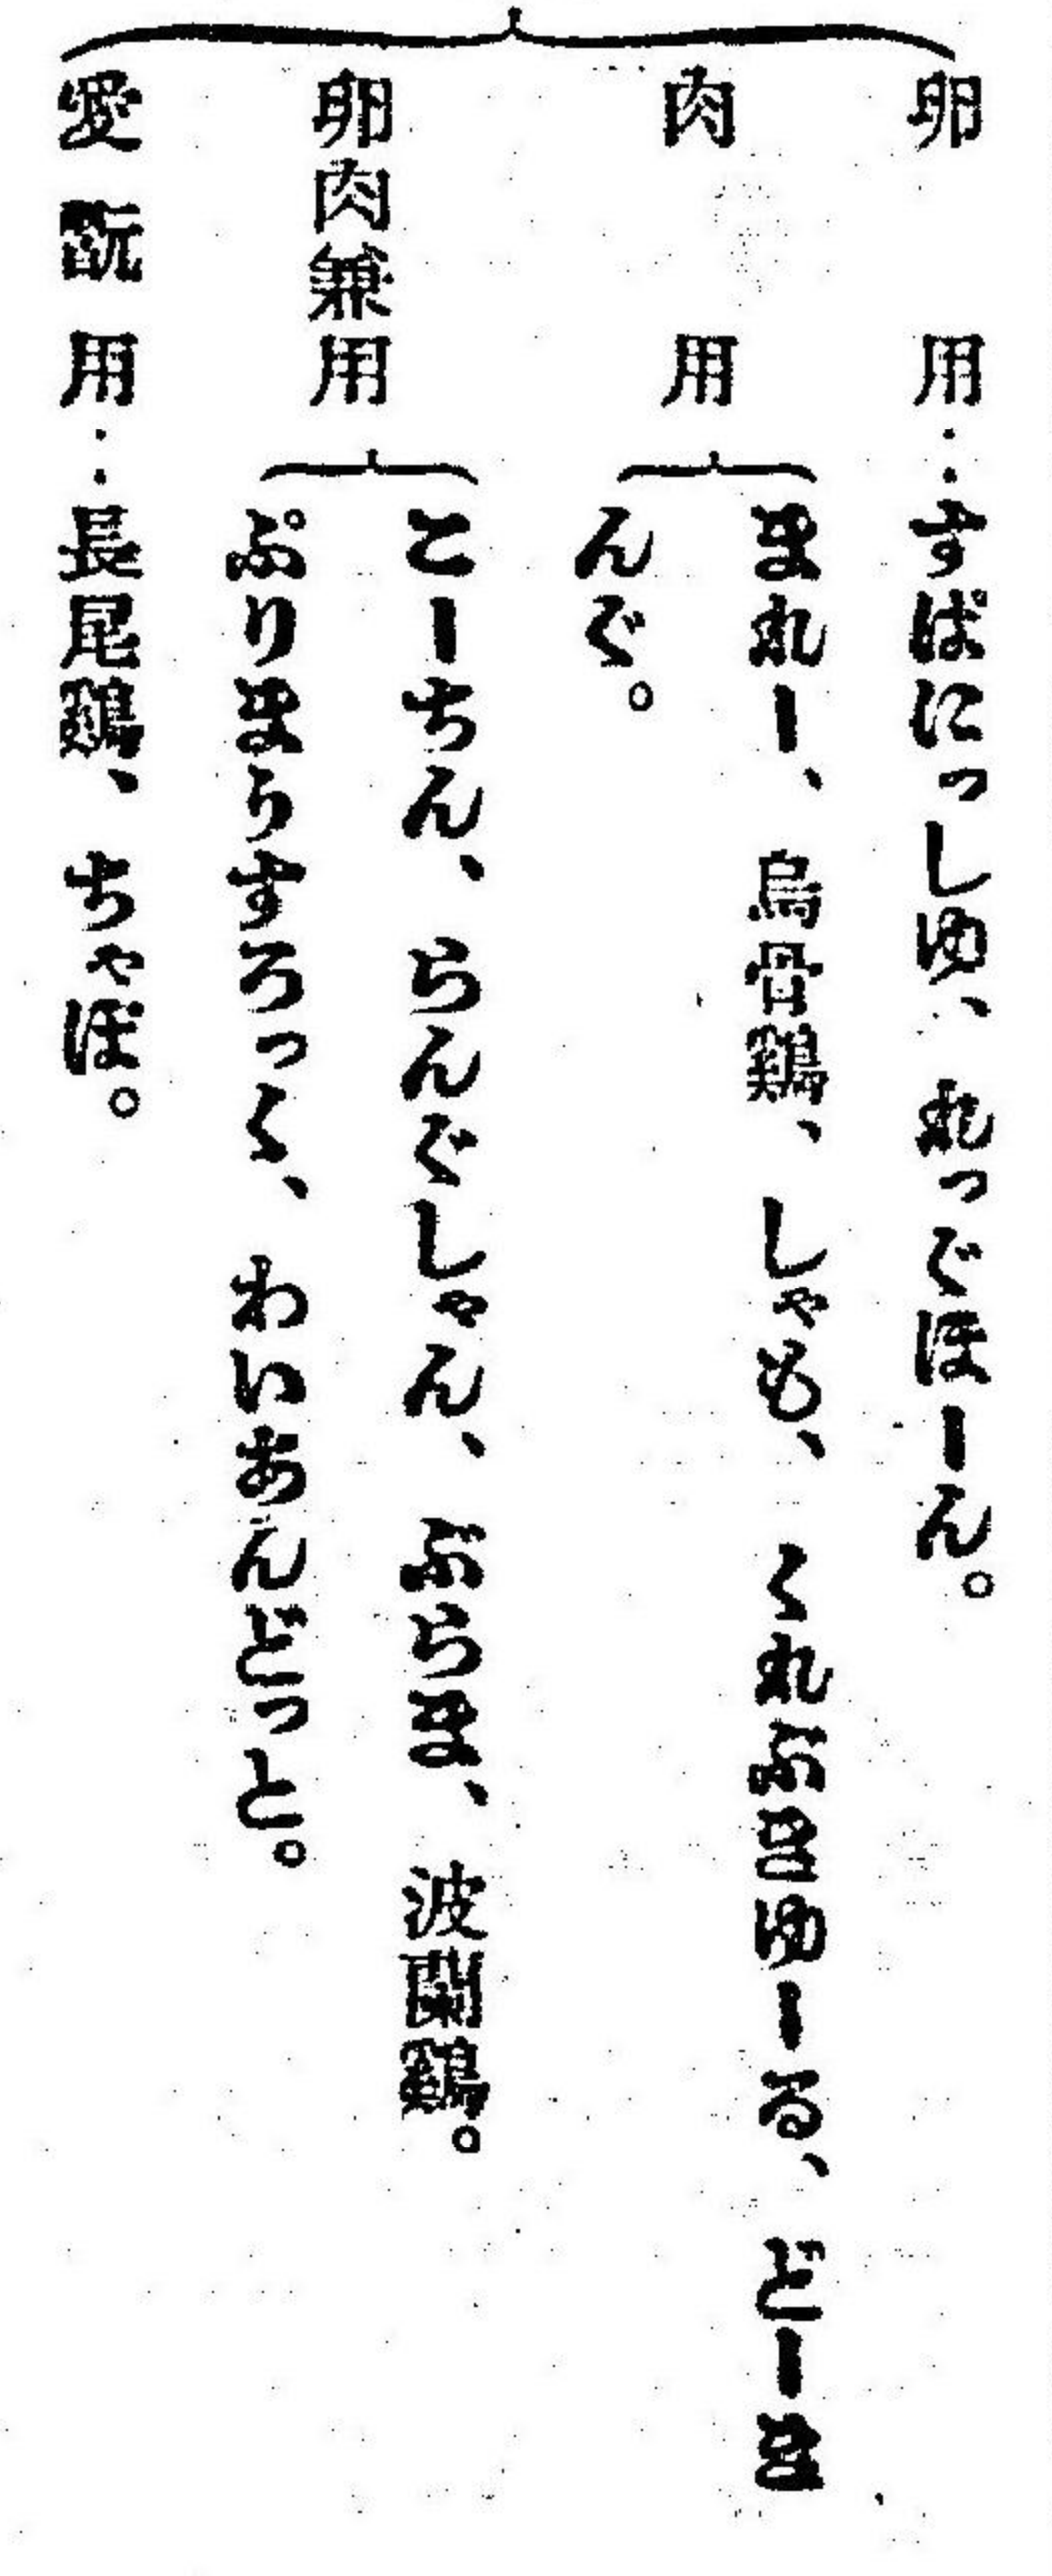 卵用‥すぱにっしゆ、れっぐほーん。
肉用
まれー、烏骨鶏、しゃも、くれぶきゆーる、どーき
んぐ。
卵肉兼用
こーちん、らんぐしゃん、ぶらま、波蘭鶏。
ぷりまうすろっく、わいあんどっと。
愛翫用‥長尾鶏、ちゃぼ。